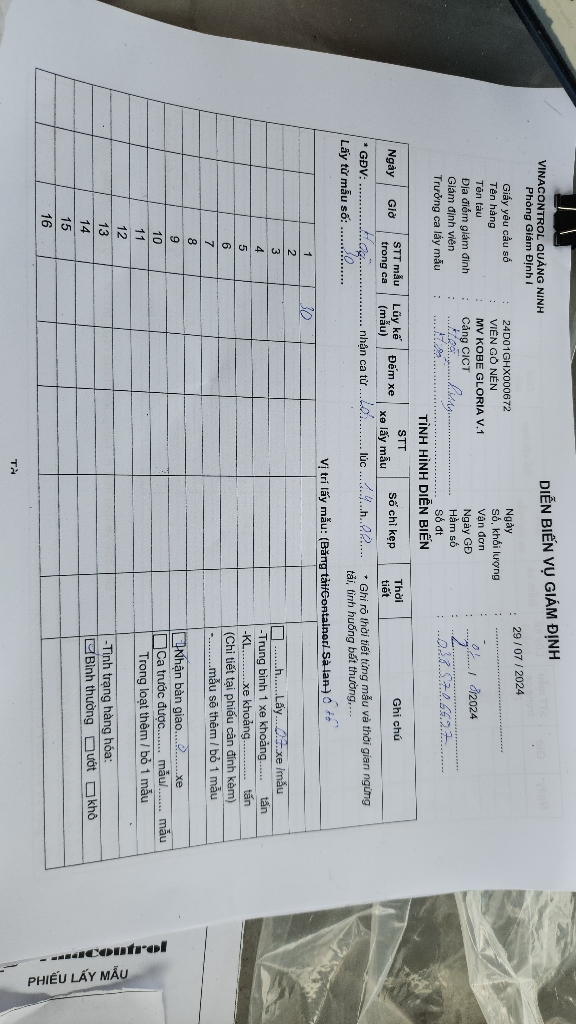 VINACONTROL QUẢNG NINH
Phòng Giám Định I
DIỄN BIẾN VỤ GIÁM ĐỊNH
Giấy yêu cầu số : 24D01GHX000672
Ngày : 29 / 07 / 2024
Tên hàng : VIÊN GỖ NÉN
Số, khối lượng :
Tên tàu : MV KOBE GLORIA V.1
Vận đơn :
Địa điểm giám định : Cảng CICT
Ngày GĐ : / 8/2024
Giám định viên :
Hầm số : 2
Trưởng ca lấy mẫu :
Số đt :
TÌNH HÌNH DIỄN BIẾN
Ngày
Giờ
STT mẫu trong ca
Lũy kế (mẫu)
Đếm xe
STT xe lấy mẫu
Số chì kẹp
Thời tiết
Ghi chú
* GĐV: ........ nhận ca từ ........ lúc ........h........
* Ghi rõ thời tiết từng mẫu và thời gian ngừng tải, tình huống bất thường,...
Lấy từ mẫu số: ...10......
Vị trí lấy mẫu: (Băng tải/Container/ Sà lan ) ô tô
1
10
2
3
4
5
6
7
8
9
10
11
12
13
14
15
16
☐ ......h......Lấy...07..xe /mẫu
-Trung bình 1 xe khoảng....... tấn
-KL.......xe khoảng.......... tấn
(Chi tiết tại phiếu cân đính kèm)
-..........mẫu sẽ thêm / bỏ 1 mẫu
Nhận bàn giao.........xe
☐ Ca trước được....... mẫu/....... mẫu
Trong loạt thêm / bỏ 1 mẫu
-Tình trạng hàng hóa:
☑ Bình thường ☐ ướt ☐ khô
PHIẾU LẤY MẪU